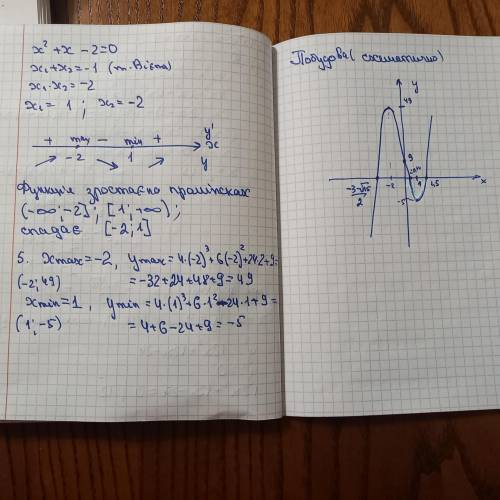 x² + x - 2 = 0
x₁ + x₂ = -1 (т. Вієта)
x₁ · x₂ = -2
x₁ = 1 ; x₂ = -2
+ max - min + y'
-2 1 x
y
Функція зростає на проміжках
(-∞; -2] ; [1; +∞) ;
спадає [-2; 1]
5. xmax = -2, ymax = 4·(-2)³ + 6(-2)² + 24·2 + 9 =
(-2; 49) = -32 + 24 + 48 + 9 = 49
xmin = 1, ymin = 4·(1)³ + 6·1² - 24·1 + 9 =
(1; -5) = 4 + 6 - 24 + 9 = -5
Побудова (схематично)
y
49
9
-2
1,5
x
-5